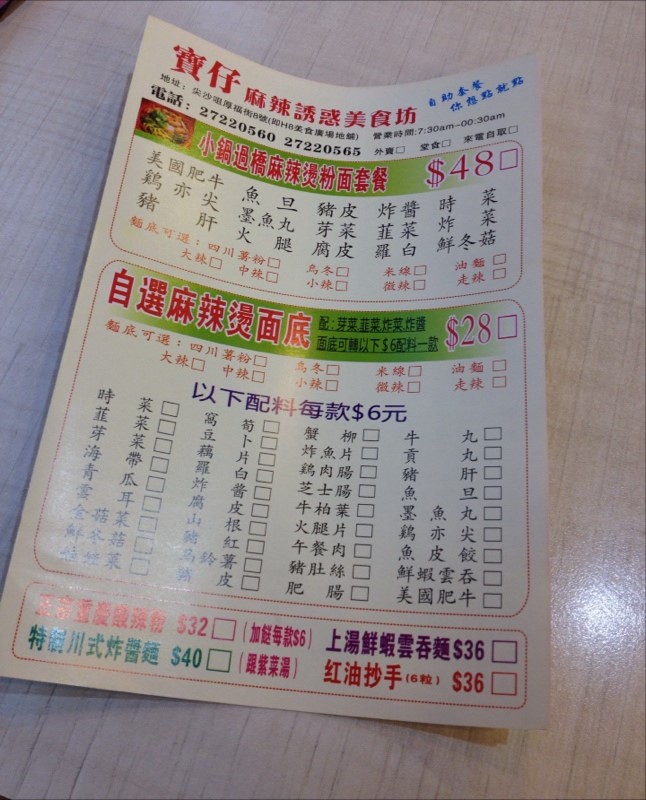 寶仔麻辣誘惑美食坊
自助套餐
你想點就點
地址：尖沙咀厚福街8號(即H8美食廣場地舖) 營業時間:7:30am-00:30am
電話：27220560 27220565 外賣□ 堂食□ 來電自取□
小鍋過橋麻辣燙粉面套餐 $48□
美國肥牛 魚旦 豬皮 炸醬 時菜
鷄亦尖 墨魚丸 芽菜 韮菜 炸菜
豬肝 火腿 腐皮 羅白 鮮冬菇
麵底可選：四川薯粉□ 烏冬□ 米線□ 油麵□
大辣□ 中辣□ 小辣□ 微辣□ 走辣□
自選麻辣燙面底 $28□
配：芽菜.韮菜.炸菜.炸醬
面底可轉以下$6配料一款
麵底可選：四川薯粉□ 烏冬□ 米線□ 油麵□
大辣□ 中辣□ 小辣□ 微辣□ 走辣□
以下配料每款$6元
時菜□ 窩筍□ 蟹柳□ 牛丸□
韮菜□ 豆卜□ 炸魚片□ 貢丸□
芽菜□ 藕片□ 鷄肉腸□ 豬肝□
海帶□ 羅白□ 芝士腸□ 魚旦□
青瓜□ 炸醬□ 牛柏葉□ 墨魚丸□
雲耳□ 腐皮□ 火腿片□ 鷄亦尖□
金菇菜□ 山根□ 午餐肉□ 魚皮餃□
鮮冬菇□ 豬紅□ 豬肚絲□ 鮮蝦雲吞□
娃娃菜□ 馬鈴薯□ 肥腸□ 美國肥牛□
皮□
重慶酸辣粉 $32□ (加餸每款$6) 上湯鮮蝦雲吞麵$36□
特制川式炸醬麵 $40□ (跟紫菜湯) 红油抄手(6粒) $36□